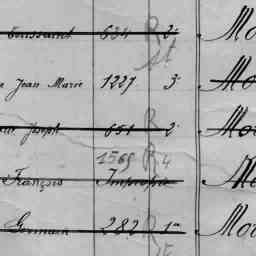 Toussaint 634 R 2 Mo
St
Jean Marie 1227 3 Mo
Joseph 651 R 2 Mo
1569 R 4
François Impropre
Germain 282 R 1 Mo